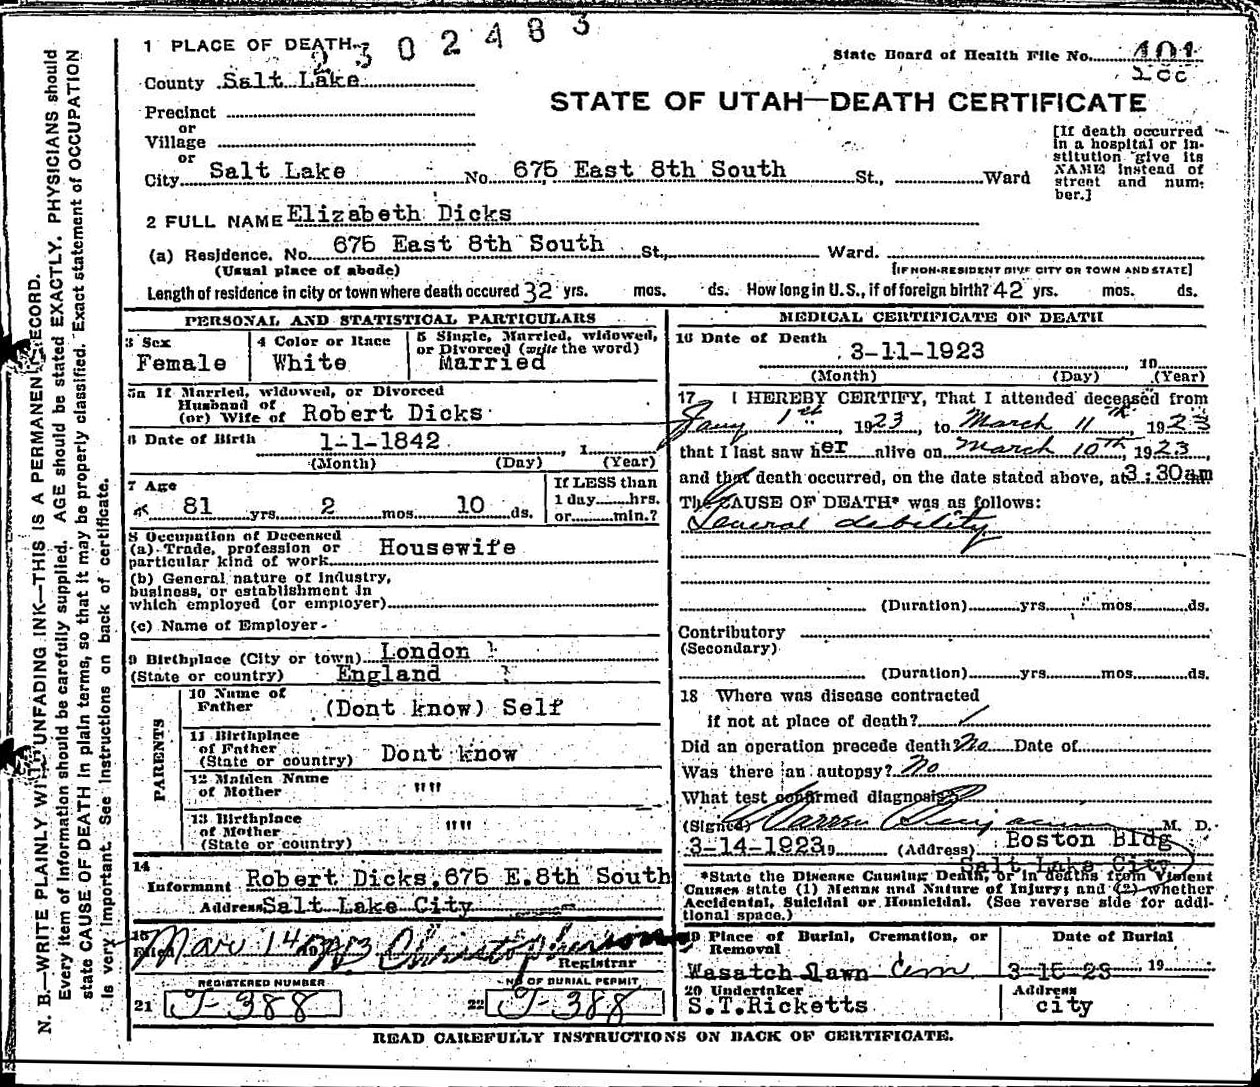 2302483
1 PLACE OF DEATH
State Board of Health File No. 401
County Salt Lake
STATE OF UTAH—DEATH CERTIFICATE
Precinct
or
Village
or
City Salt Lake No. 675 East 8th South St., Ward
[If death occurred
in a hospital or in-
stitution give its
NAME instead of
street and num-
ber.]
2 FULL NAME Elizabeth Dicks
(a) Residence. No. 675 East 8th South St., Ward.
(Usual place of abode) [IF NON-RESIDENT GIVE CITY OR TOWN AND STATE]
Length of residence in city or town where death occured 32 yrs. mos. ds. How long in U.S., if of foreign birth? 42 yrs. mos. ds.
PERSONAL AND STATISTICAL PARTICULARS
3 Sex
Female
4 Color or Race
White
5 Single, Married, widowed,
or Divorced (write the word)
Married
5a If Married, widowed, or Divorced
Husband of
(or) Wife of Robert Dicks
6 Date of Birth 1-1-1842, 1
(Month) (Day) (Year)
7 Age
81 yrs. 2 mos. 10 ds.
If LESS than
1 day hrs.
or min.?
8 Occupation of Deceased
(a) Trade, profession or
particular kind of work Housewife
(b) General nature of Industry,
business, or establishment in
which employed (or employer)
(c) Name of Employer
9 Birthplace (City or town) London
(State or country) England
PARENTS
10 Name of
Father (Dont know) Self
11 Birthplace
of Father
(State or country) Dont know
12 Maiden Name
of Mother " "
13 Birthplace
of Mother
(State or country) " "
14
Informant Robert Dicks, 675 E. 8th South
Address Salt Lake City
15
Filed Mar 14 1923 Christopherson
Registrar
REGISTERED NUMBER
21 J-388
NO OF BURIAL PERMIT
22 J-388
MEDICAL CERTIFICATE OF DEATH
16 Date of Death
3-11-1923, 19
(Month) (Day) (Year)
17 I HEREBY CERTIFY, That I attended deceased from
Jany 1st 1923, to March 11th, 1923
that I last saw her alive on March 10th, 1923,
and that death occurred, on the date stated above, at 3:30am
The CAUSE OF DEATH* was as follows:
General debility
(Duration) yrs. mos. ds.
Contributory
(Secondary)
(Duration) yrs. mos. ds.
18 Where was disease contracted
if not at place of death?
Did an operation precede death No Date of
Was there an autopsy? No
What test confirmed diagnosis?
(Signed) Warren Benjamin M. D.
3-14-1923 19 (Address) Boston Bldg
Salt Lake City
*State the Disease Causing Death, or in deaths from Violent
Causes state (1) Means and Nature of Injury; and (2) whether
Accidental, Suicidal or Homicidal. (See reverse side for addi-
tional space.)
19 Place of Burial, Cremation, or
Removal
Wasatch Lawn Cem
Date of Burial
3-15-23 19
20 Undertaker
S.T.Ricketts
Address
city
READ CAREFULLY INSTRUCTIONS ON BACK OF CERTIFICATE.
N. B.—WRITE PLAINLY WITH UNFADING INK—THIS IS A PERMANENT RECORD.
Every item of Information should be carefully supplied. AGE should be stated EXACTLY. PHYSICIANS should
state CAUSE OF DEATH in plain terms, so that it may be properly classified. Exact statement of OCCUPATION
is very Important. See Instructions on back of certificate.